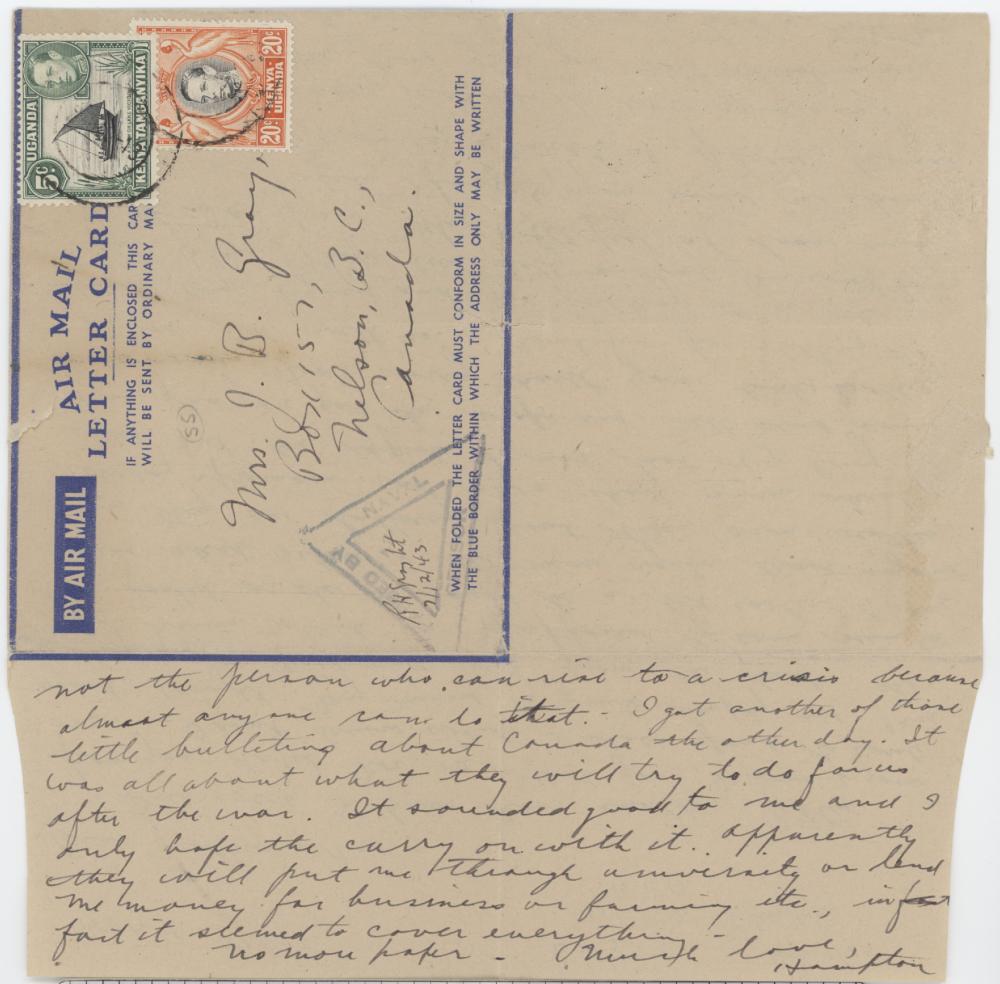 UGANDA
KENYA TANGANYIKA
5c
20c
20c
KENYA-
UGANDA
AIR MAIL
LETTER CARD
IF ANYTHING IS ENCLOSED THIS CAR
WILL BE SENT BY ORDINARY MA
BY AIR MAIL
55
Mrs. J. B. Gray,
Box 1157,
Nelson, B.C.,
Canada.
ED BY
NAVAL
2/12/43
WHEN FOLDED THE LETTER CARD MUST CONFORM IN SIZE AND SHAPE WITH
THE BLUE BORDER WITHIN WHICH THE ADDRESS ONLY MAY BE WRITTEN
not the person who can rise to a crisis because
almost anyone can do that. - I got another of those
little bulletins about Canada the other day. It
was all about what they will try to do for us
after the war. It sounded good to me and I
only hope the carry on with it. Apparently
they will put me through university or lend
me money for business or farming etc., in
fact it seemed to cover everything -
No more paper - Much love,
Hampton